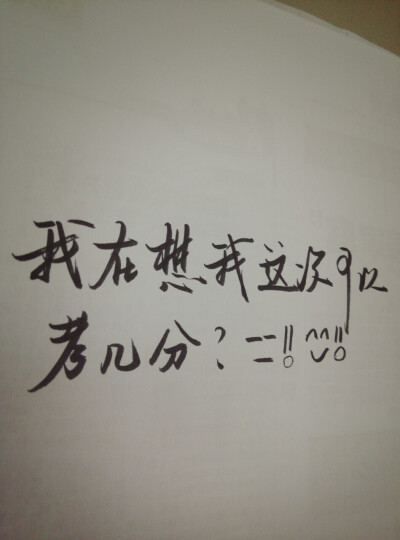 我在想我这次可以
考几分？=!! ^^!!